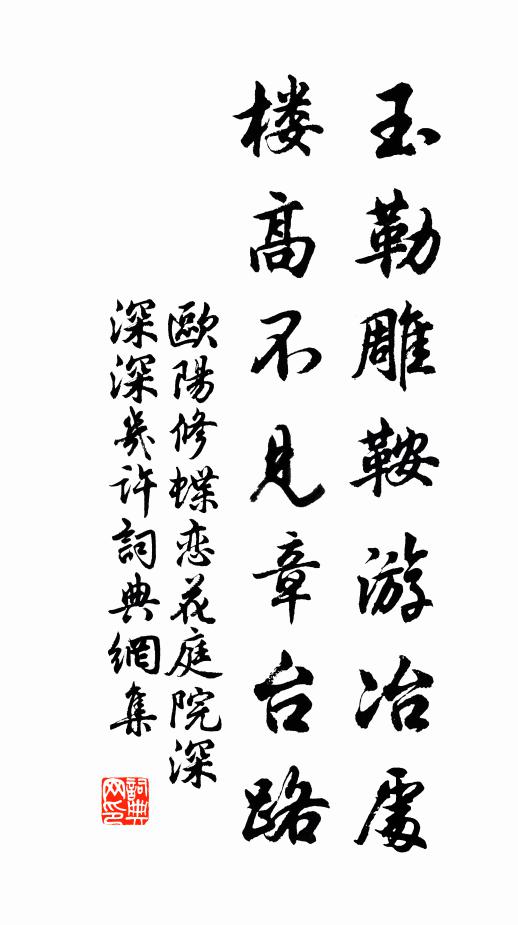 玉勒雕鞍游冶處
楼高不見章台路
歐陽修蝶恋花庭院深
深深幾許詞典網集
詞典
网印